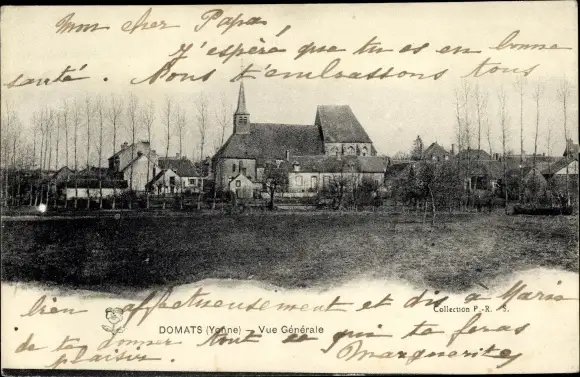 Mon cher Papa,
J'espère que tu es en bonne
santé. Nous t'embrassons tous
bien affectueusement et dis a Marie
Collection P.-R. S.
DOMATS (Yonne) – Vue Générale
de te donner tout ce qui te feras
plaisir. Marguerite